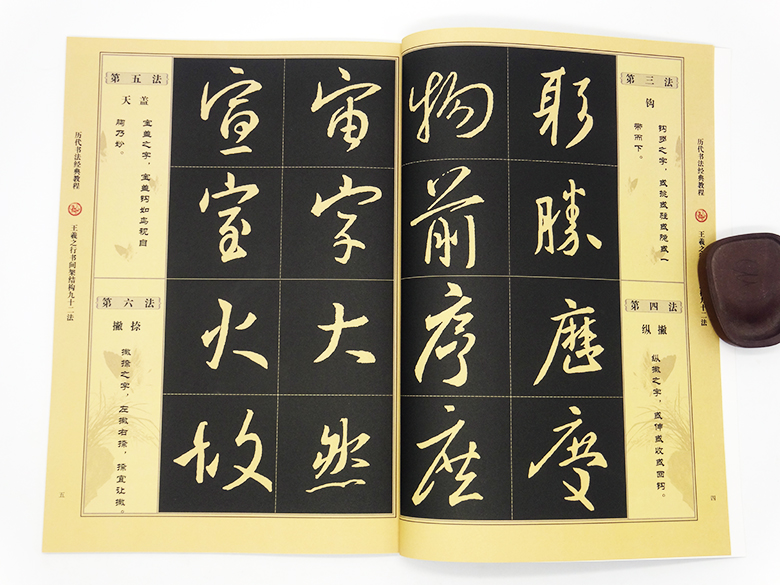 历代书法经典教程
王羲之 九十二法
第三法
钩
钩努之字，或挑或 或隐或一
带而下。
第四法
纵撇
纵撇之字，或伸或收或回钩。
四
躬勝歷度
物前序庶
宙字大然
宣室火故
第五法
天盖
宝盖之字，宝盖钩如鸟视自
胸乃妙。
第六法
撇捺
撇捺之字，左撇右捺，捺宜让撇。
历代书法经典教程
王羲之行书间架结构九十二法
五